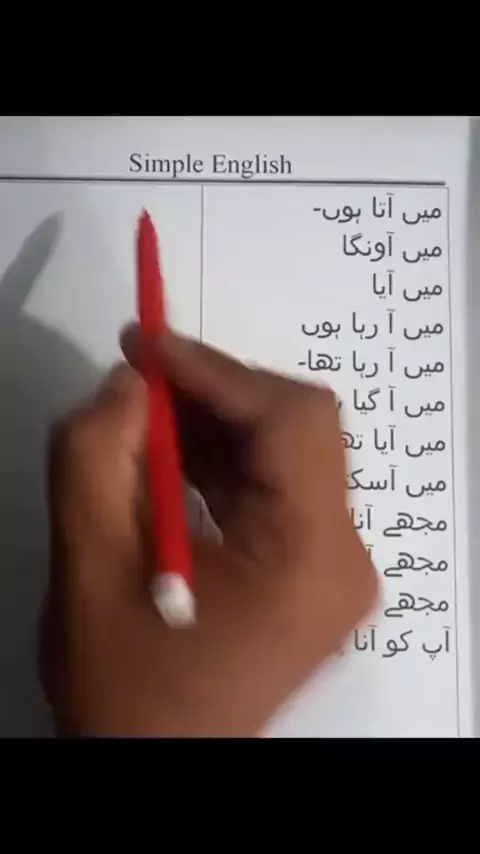 Simple English
میں آتا ہوں-
میں آونگا
میں آیا
میں آ رہا ہوں
میں آ رہا تھا-
میں آ گیا
میں آیا
میں
مجھے آنا
مجھے
مجھے
آپ کو آنا